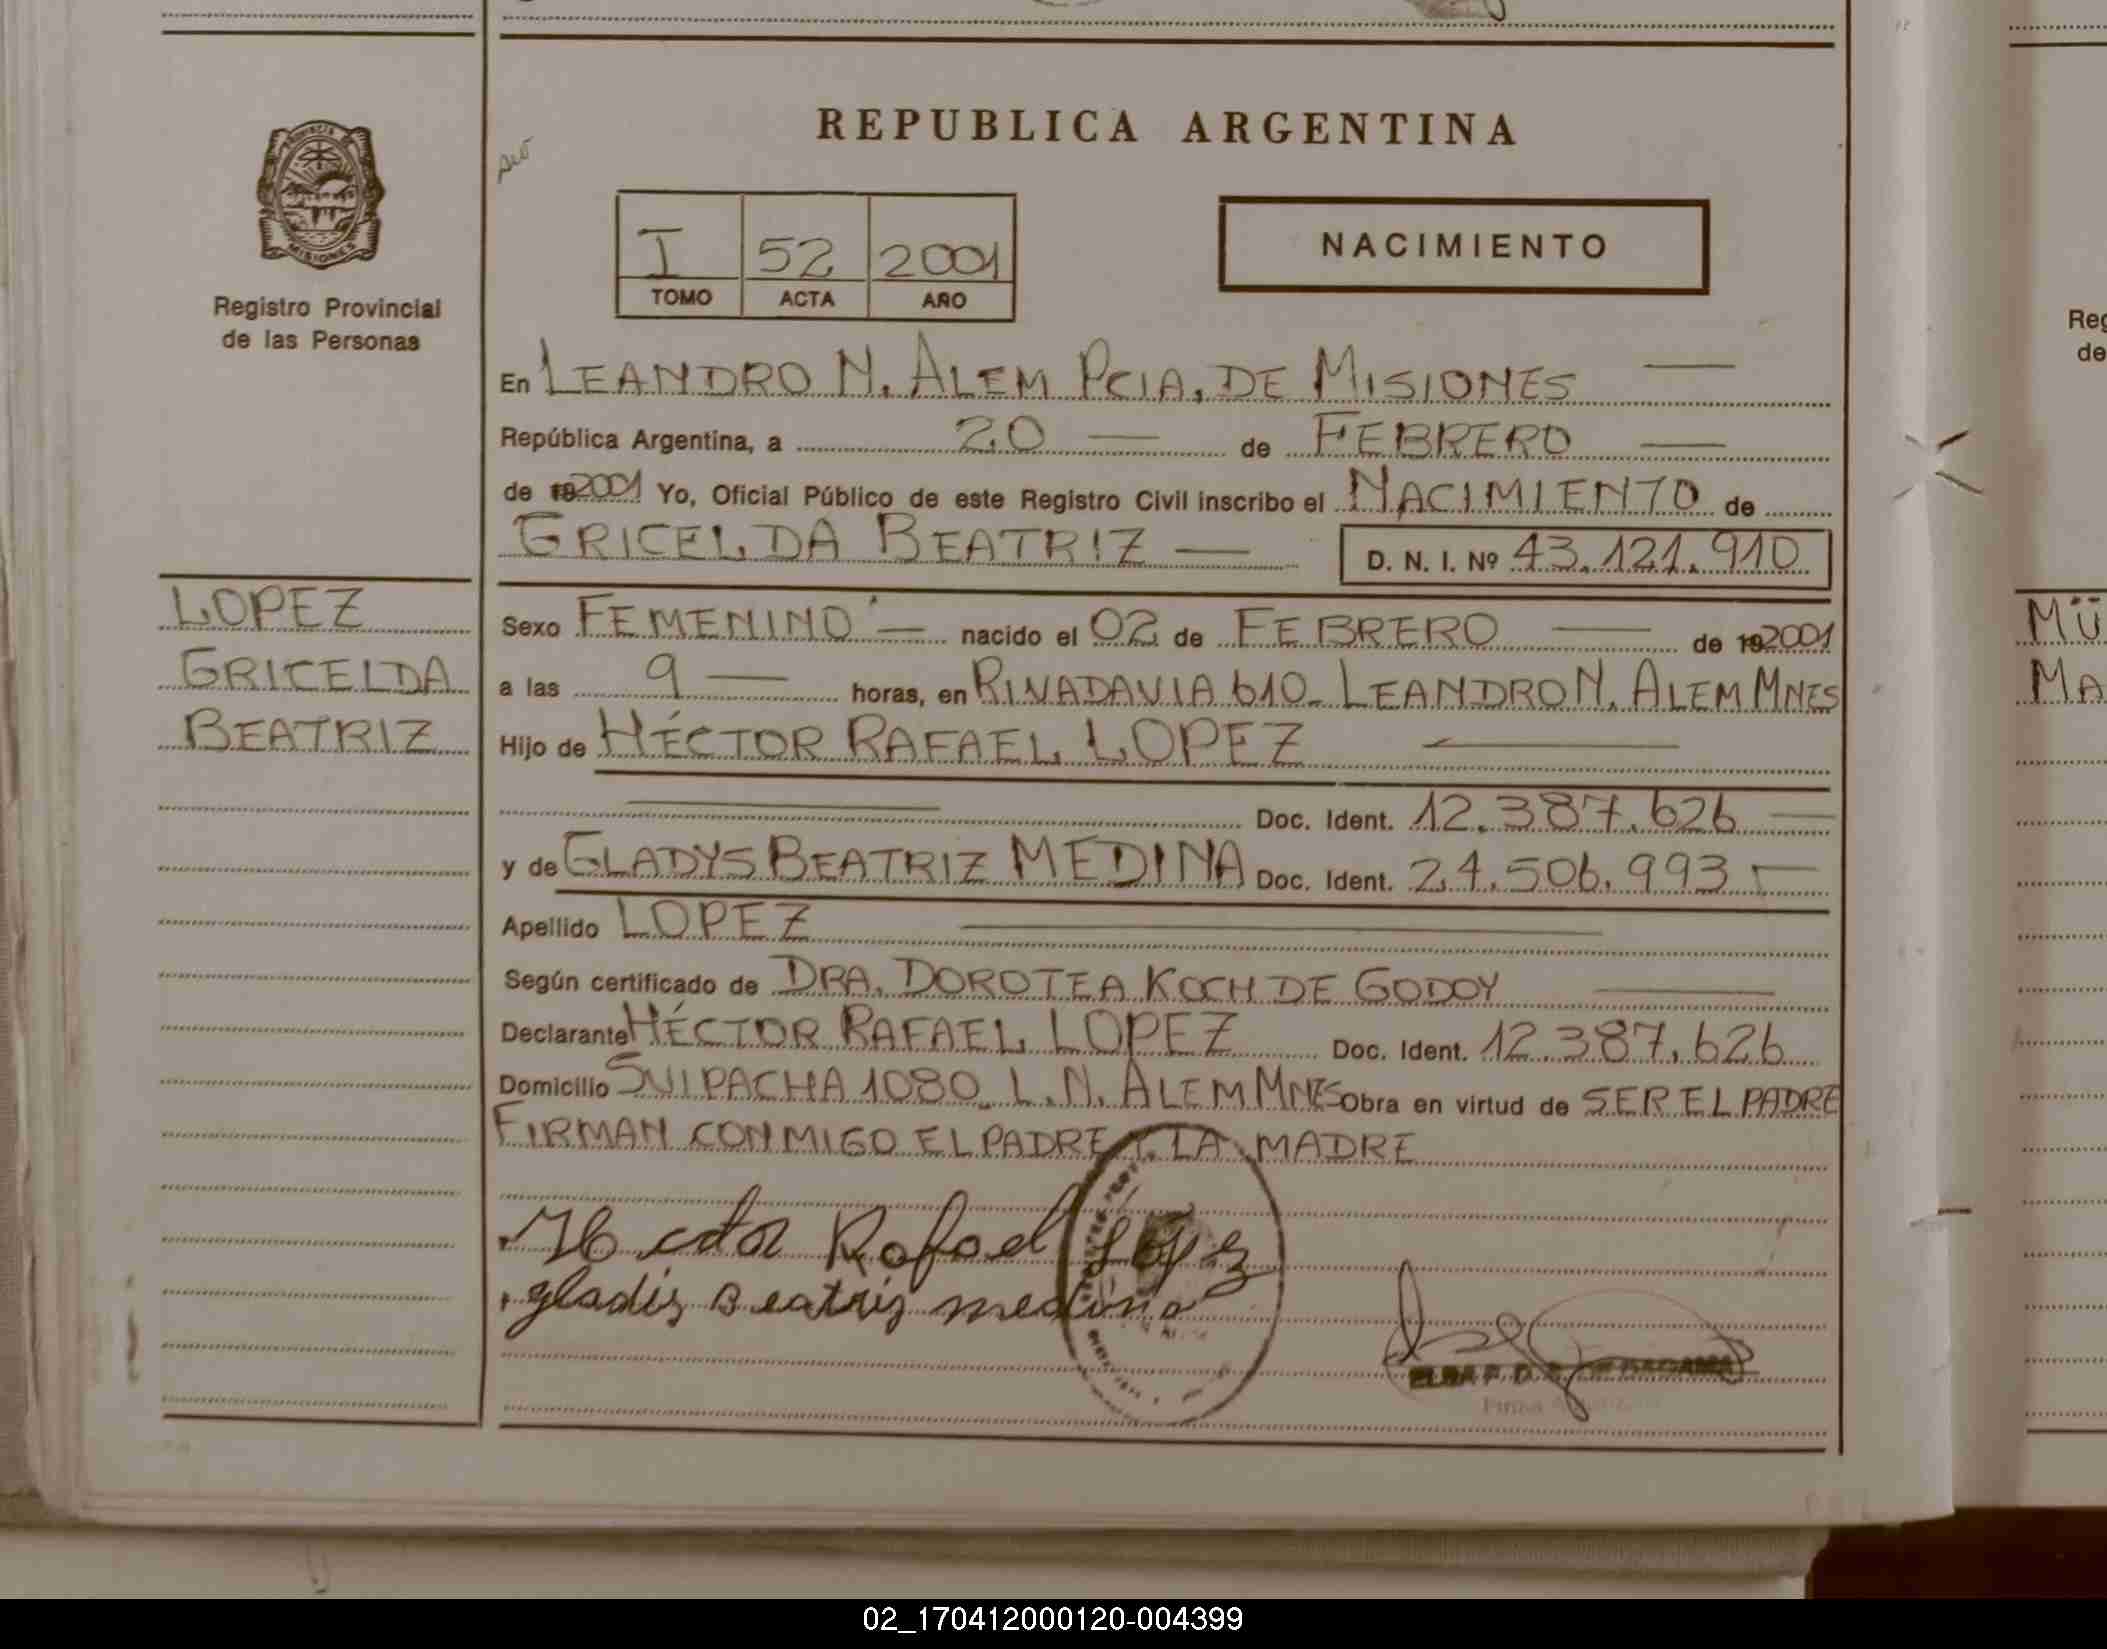 REPUBLICA ARGENTINA
PROVINCIA DE
MISIONES
Registro Provincial
de las Personas
I 52 2001
TOMO ACTA AÑO
NACIMIENTO
En LEANDRO N. ALEM PCIA. DE MISIONES
República Argentina, a 20 de FEBRERO
de 19 2001 Yo, Oficial Público de este Registro Civil inscribo el NACIMIENTO de
GRICELDA BEATRIZ D. N. I. Nº 43.121.910
LOPEZ
GRICELDA
BEATRIZ
Sexo FEMENINO nacido el 02 de FEBRERO de 19 2001
a las 9 horas, en RIVADAVIA 610_ LEANDRO N. ALEM MNES
Hijo de HÉCTOR RAFAEL LOPEZ
Doc. Ident. 12.387.626
y de GLADYS BEATRIZ MEDINA Doc. Ident. 24.506.993
Apellido LOPEZ
Según certificado de DRA. DOROTEA KOCH DE GODOY
Declarante HÉCTOR RAFAEL LOPEZ Doc. Ident. 12.387.626
Domicilio SUIPACHA 1080_ L.N. ALEM MNES Obra en virtud de SER EL PADRE
FIRMAN CONMIGO EL PADRE Y LA MADRE
Hector Rafael Lopez
gladis Beatriz medina
Reg
de
MÜ
MA
02_170412000120-004399